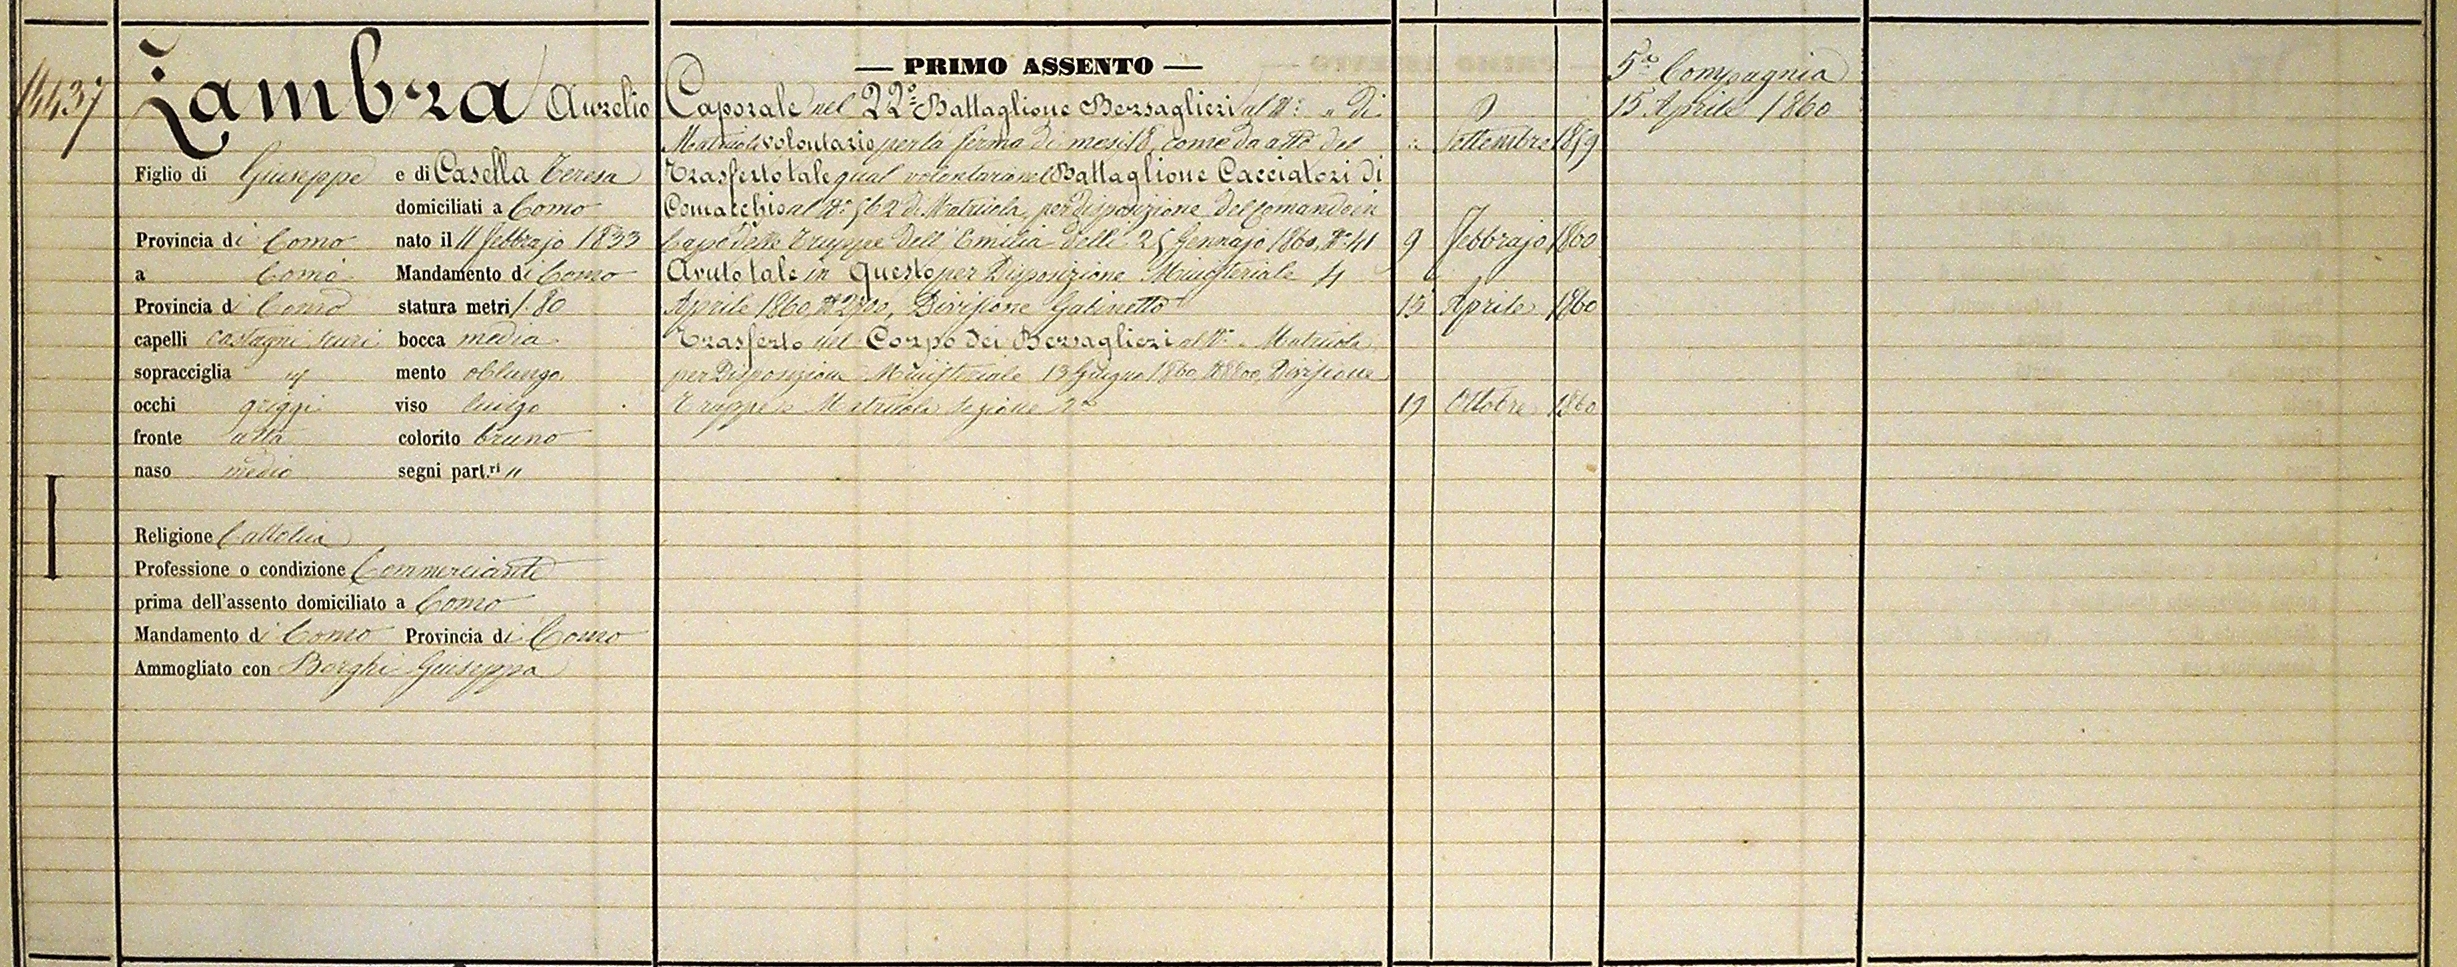 14437
Zambra Aurelio
Figlio di Giuseppe e di Casella Teresa
domiciliati a Como
Provincia di Como nato il 11 febbrajo 1833
a Como Mandamento di Como
Provincia di Como statura metri 1.80
capelli castagni scuri bocca media
sopracciglia id mento oblungo
occhi griggi viso lungo
fronte alta colorito bruno
naso medio segni part.ri "
Religione Cattolica
Professione o condizione Commerciante
prima dell'assento domiciliato a Como
Mandamento di Como Provincia di Como
Ammogliato con Borghi Giuseppa
— PRIMO ASSENTO —
Caporale nel 22º Battaglione Bersaglieri al Nº: " di
Matricola volontario per la ferma di mesi 18, come da atto del " Settembre 1859
Trasferto tale qual volontario nel Battaglione Cacciatori di
Comacchio al Nº 562 di Matricola, per disposizione del Comando in
Capo delle Truppe dell'Emilia delli 25 Gennajo 1860, Nº 41 9 Febbrajo 1860
Avuto tale in questo per Disposizione Ministeriale 4
Aprile 1860, Nº 2700, Divisione Gabinetto 15 Aprile 1860
Trasferto nel Corpo dei Bersaglieri al Nº " Matricola
per Disposizione Ministeriale 13 Giugno 1860, Divisione
Truppe e Matricola Sezione 2ª 19 Ottobre 1860
5ª Compagnia
15 Aprile 1860